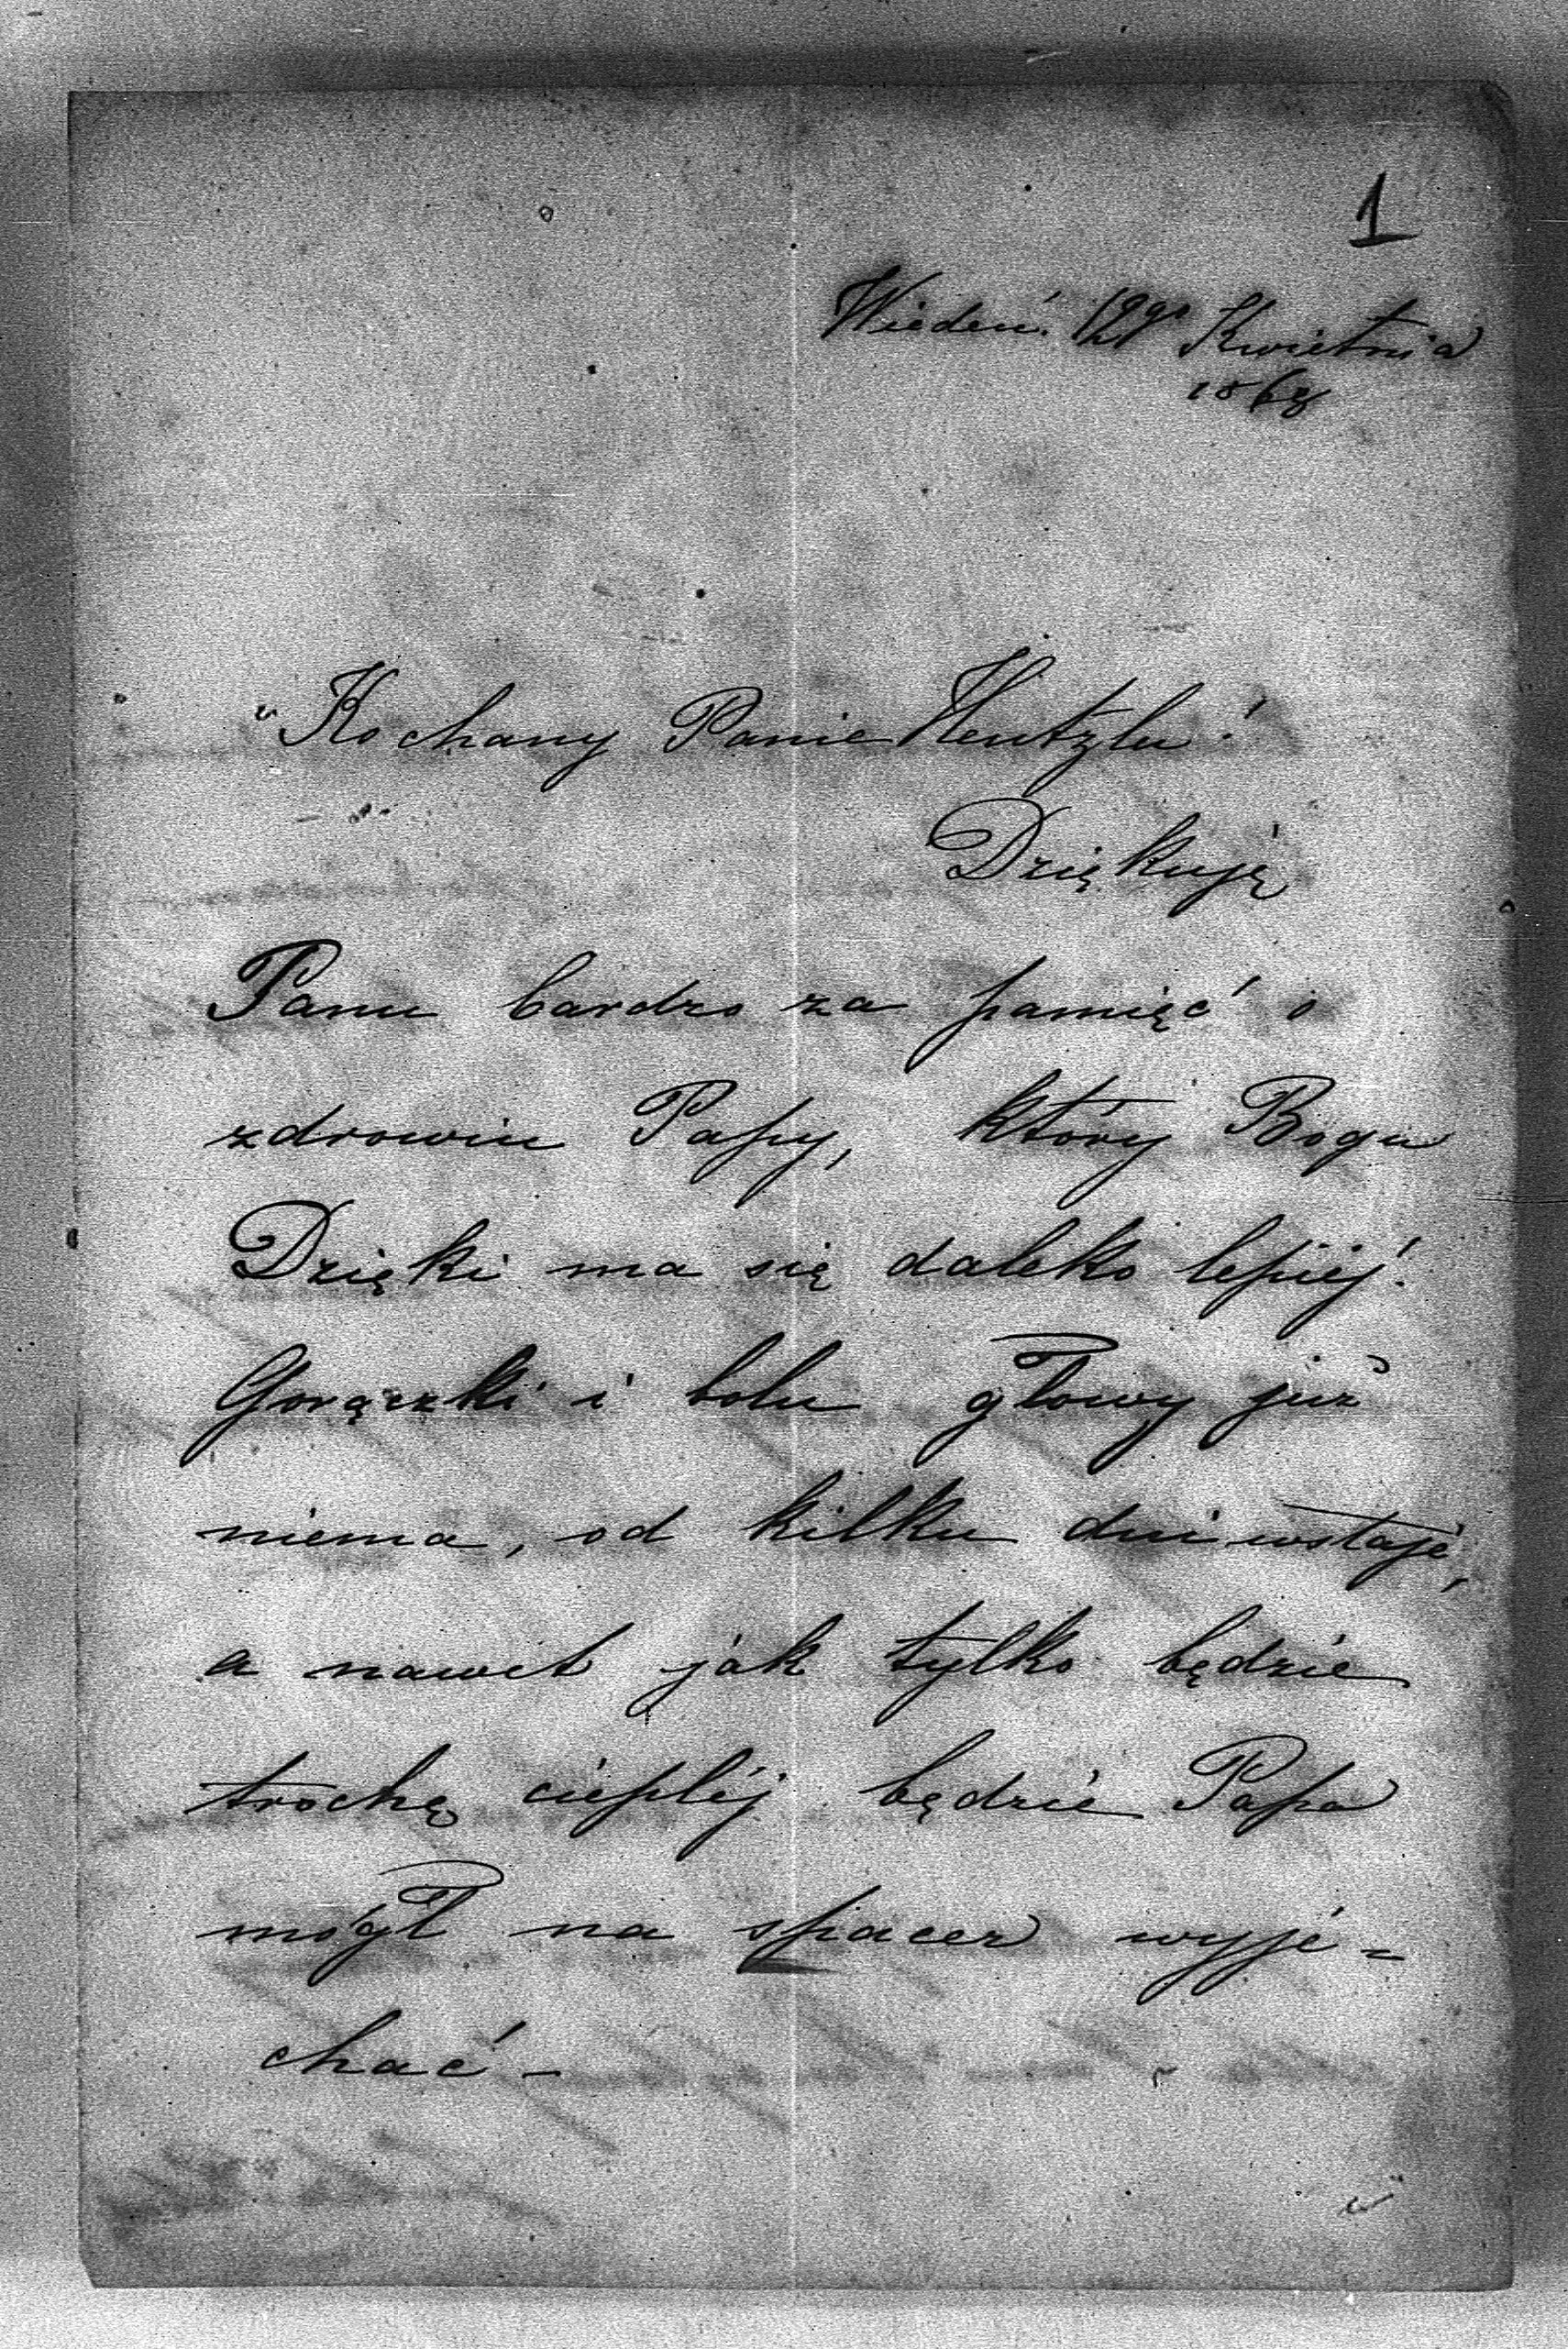 1
Wiedeń. 19go Kwietnia
1868
Kochany Panie Hentzlu!
Dziękuję
Panu bardzo za pamięć o
zdrowiu Papy, który Bogu
Dzięki ma się daleko lepiej.
Gorączki i bolu głowy już
niema, od kilku dni wstaje,
a nawet jak tylko będzie
trochę cieplej będzie Papa
mógł na spacer wyje-
chać -